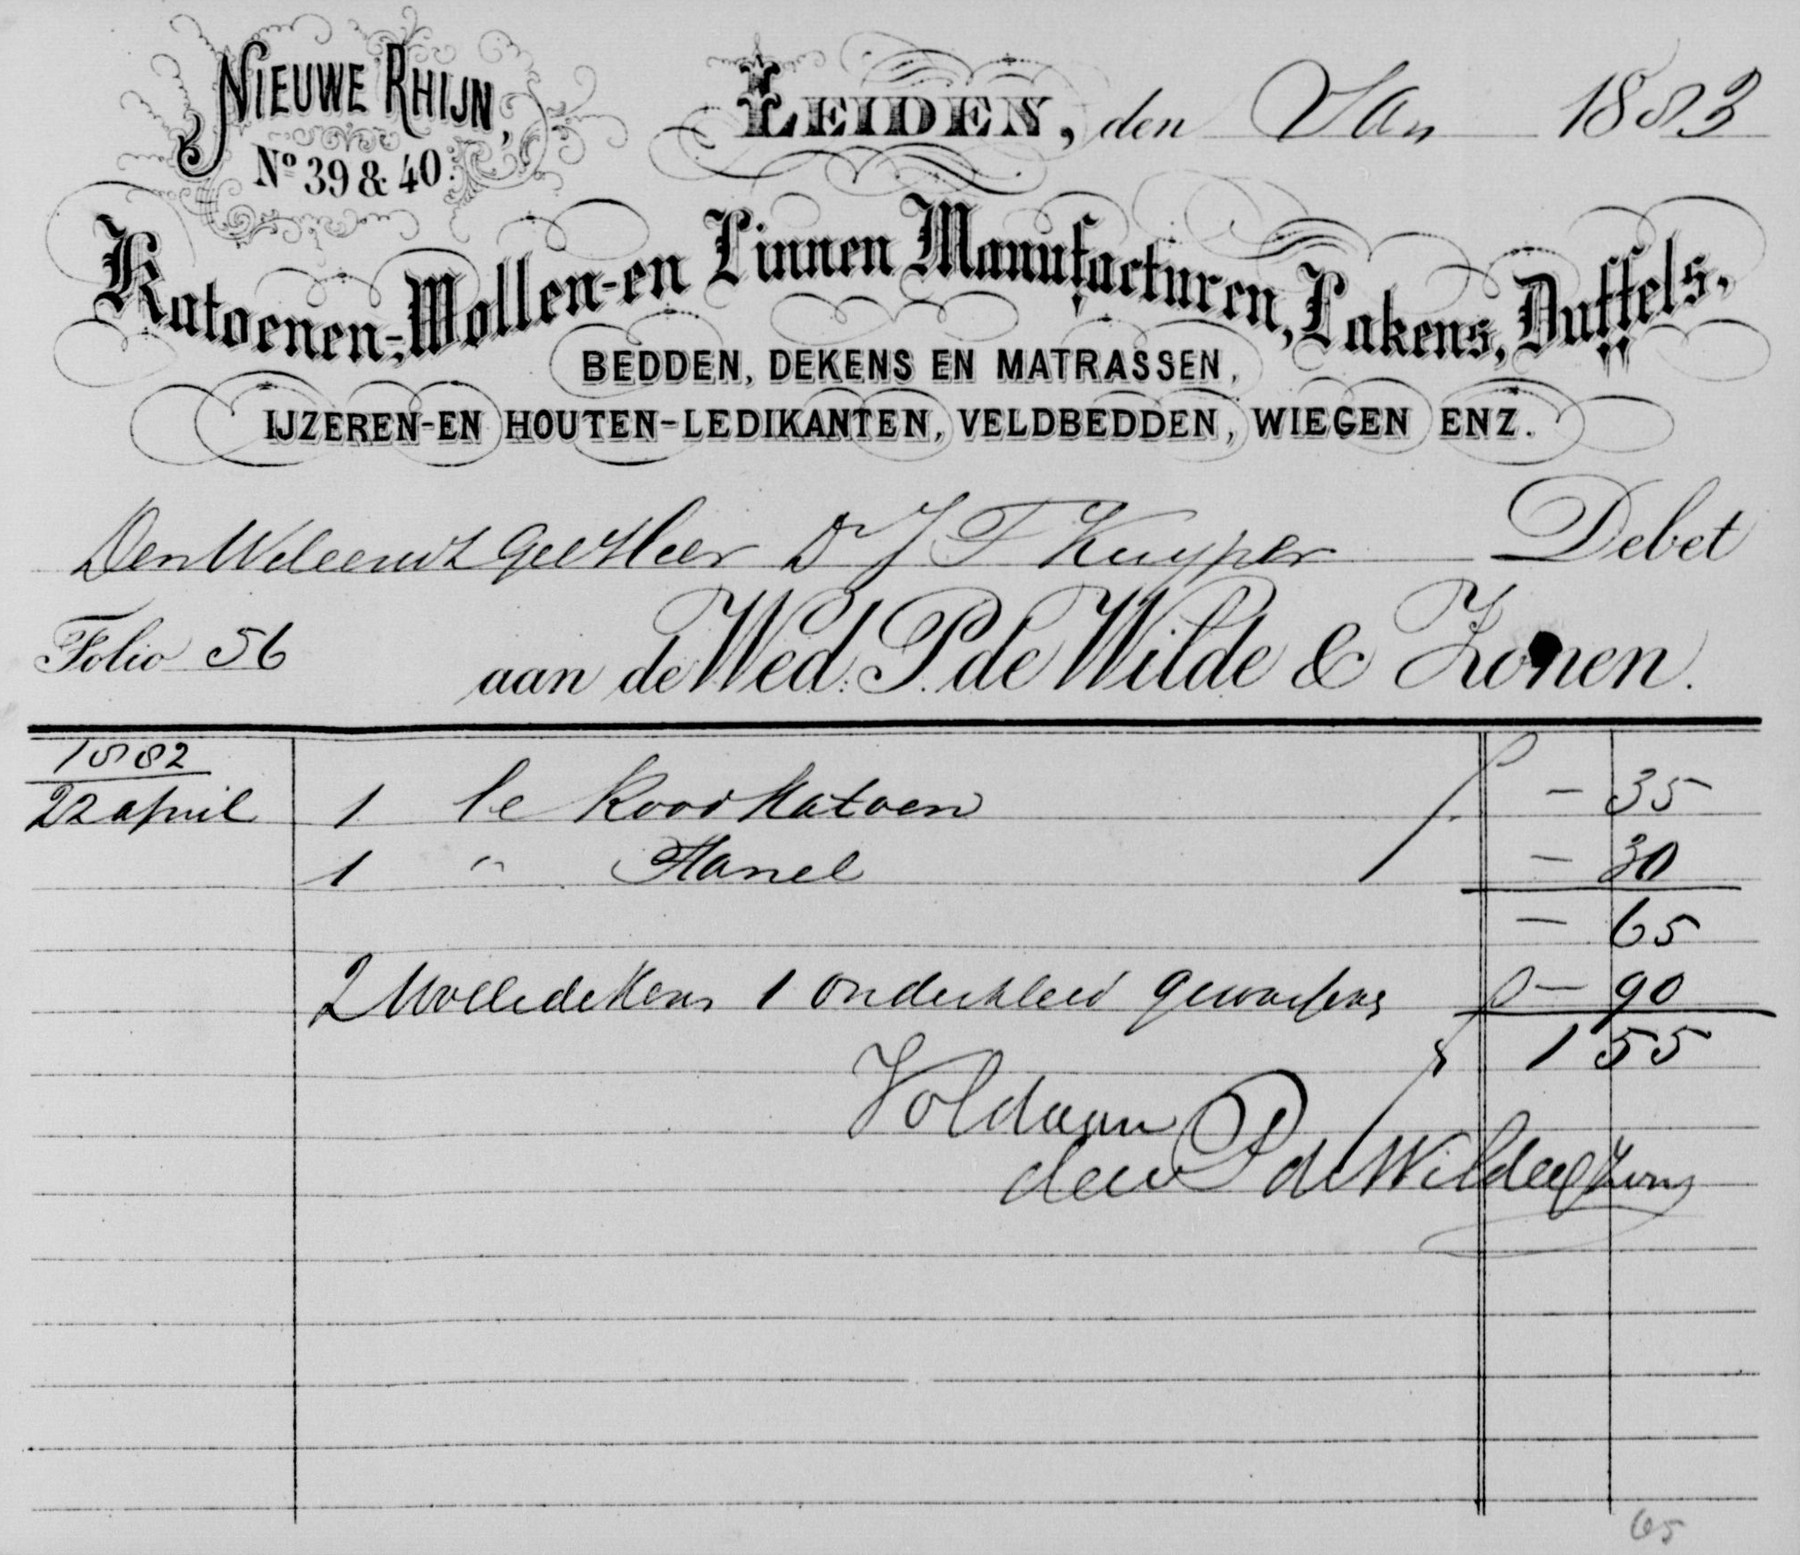 NIEUWE RHIJN,
No 39 & 40.
LEIDEN, den Jan 1883
Katoenen-, Wollen-en Linnen Manufacturen, Lakens, Duffels,
BEDDEN, DEKENS EN MATRASSEN,
IJZEREN-EN HOUTEN-LEDIKANTEN, VELDBEDDEN, WIEGEN ENZ.
Den Heer Dr J F Kuyper Debet
Folio 56
aan de Wed. P. de Wilde & Zonen.
1882
22 april 1 le Rood Katoen f. - 35
1 " Flanel - 30
- 65
2 Wolledekens 1 onderkleed f - 90
f 1 55
Voldaan
P de Wilde & Zonen
65